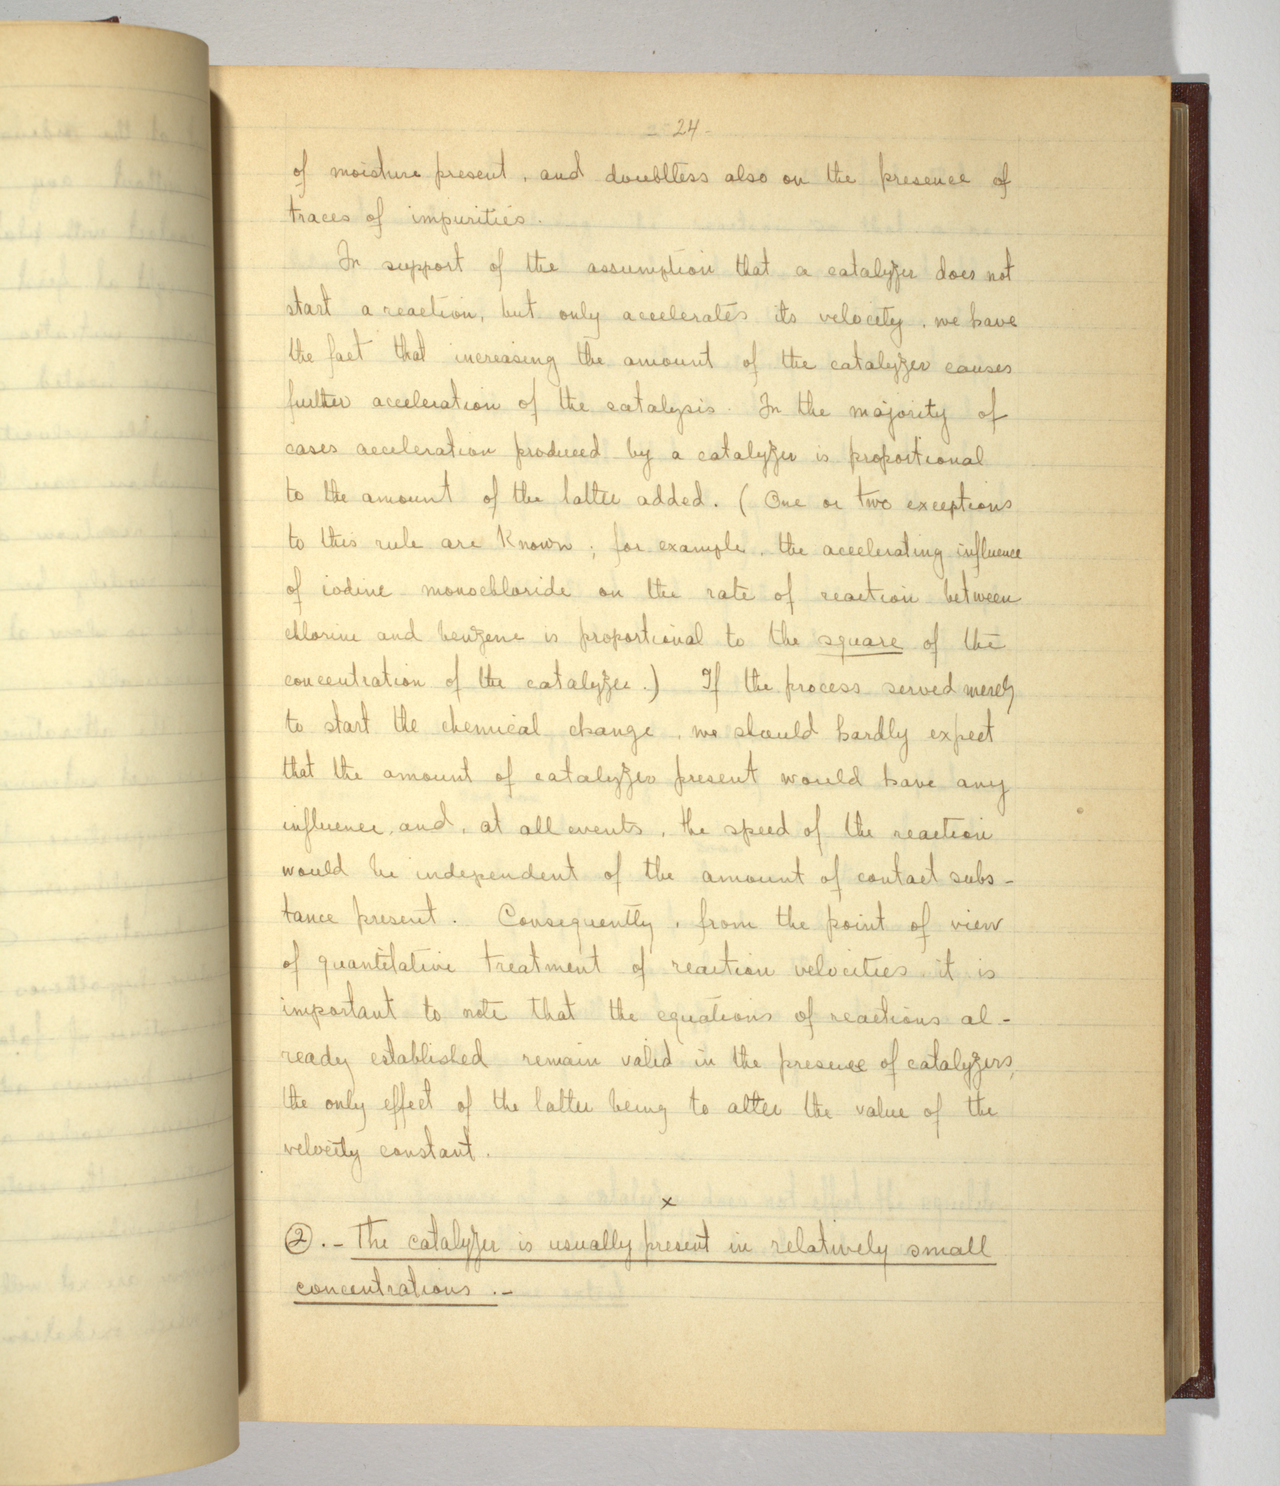 - 24 -
of moisture present, and doubltess also on the presence of
traces of impurities.
In support of the assumption that a catalyzer does not
start a reaction, but only accelerates its velocity, we have
the fact that increasing the amount of the catalyzer causes
further acceleration of the catalysis. In the majority of
cases acceleration produced by a catalyzer is proportional
to the amount of the latter added. ( One or two exceptions
to this rule are known ; for example, the accelerating influence
of iodine monochloride on the rate of reaction between
chlorine and benzene is proportional to the square of the
concentration of the catalyzer.) If the process served merely
to start the chemical change, we should hardly expect
that the amount of catalyzer present would have any
influence, and, at all events, the speed of the reaction
would be independent of the amount of contact subs-
tance present. Consequently, from the point of view
of quantitative treatment of reaction velocities it is
important to note that the equations of reactions al-
ready established remain valid in the presence of catalyzers,
the only effect of the latter being to alter the value of the
velocity constant.
x
2 .- The catalyzer is usually present in relatively small
concentrations .-